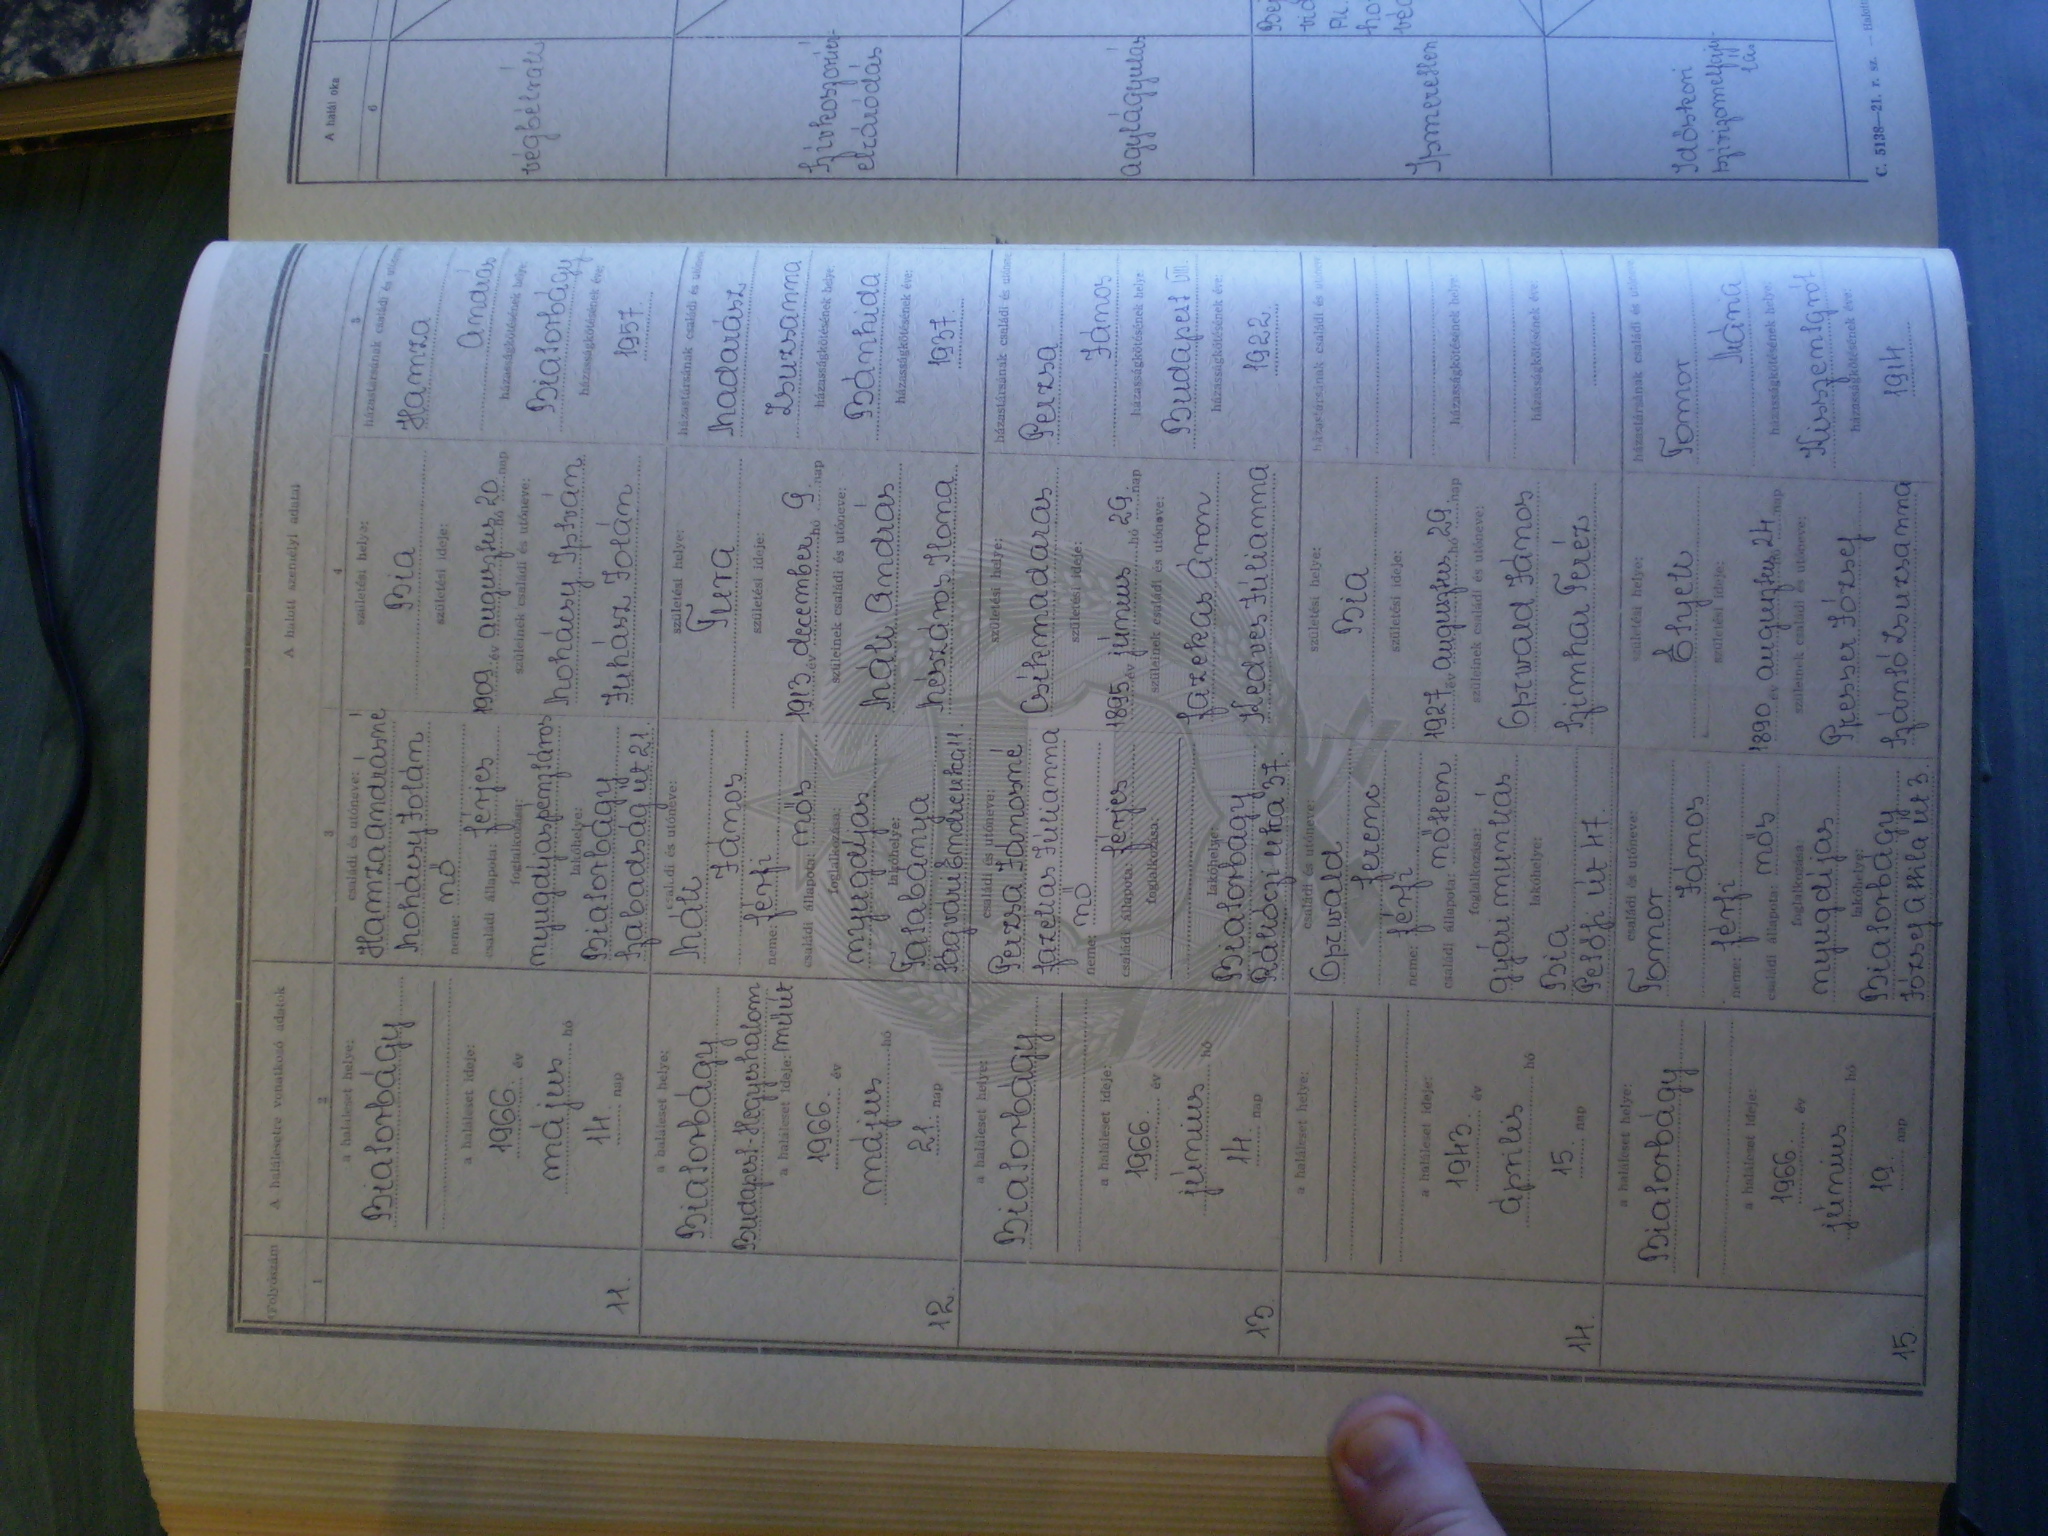 Folyószám
A halálesetre vonatkozó adatok
A halott személyi adatai
1
2
3
4
5
11.
a haláleset helye:
Biatorbágy
a haláleset ideje:
1966. év
május hó
14. nap
családi és utóneve:
Hamza Andrásné
Mohácsy Jolán
neme: nő
családi állapota: férjes
foglalkozása:
nyugdíjas pénztáros
lakóhelye:
Biatorbágy
Szabadság út 21
születési helye:
Bia
születési ideje:
1909. év augusztus hó 20 nap
szüleinek családi és utóneve:
Mohácsy István
Juhász Jolán
házastársának családi és utóneve
Hamza
András
házasságkötésének helye:
Biatorbágy
házasságkötésének éve:
1957
12.
a haláleset helye:
Biatorbágy
Budapest-Hegyeshalom
a haláleset ideje: műút
1966. év
május hó
21. nap
családi és utóneve:
Máti
János
neme: férfi
családi állapota: nős
foglalkozása:
nyugdíjas
lakóhelye:
Tatabánya
Ságvári Endre utca 11.
születési helye:
Tura
születési ideje:
1913. év december hó 9. nap
szüleinek családi és utóneve:
Máti András
Mészáros Ilona
házastársának családi és utóneve
Madarász
Zsuzsanna
házasságkötésének helye:
Bánhida
házasságkötésének éve:
1937.
13
a haláleset helye:
Biatorbágy
a haláleset ideje:
1966. év
június hó
14. nap
családi és utóneve:
Perzsa Jánosné
Fazekas Julianna
neme: nő
családi állapota: férjes
foglalkozása:
lakóhelye:
Biatorbágy
Rákóczi utca 37.
születési helye:
Csíkmadaras
születési ideje:
1895. év június hó 29. nap
szüleinek családi és utóneve:
Fazekas Áron
Kedves Julianna
házastársának családi és utóneve
Perzsa
János
házasságkötésének helye:
Budapest VIII.
házasságkötésének éve:
1922
14.
a haláleset helye:
a haláleset ideje:
1943. év
április hó
15. nap
családi és utóneve:
Ferenc
neme: férfi
családi állapota: nőtlen
foglalkozása:
gyári munkás
lakóhelye:
Bia
Petőfi út 47.
születési helye:
Bia
születési ideje:
1927. év augusztus hó 29 nap
szüleinek családi és utóneve:
János
Teréz
házastársának családi és utóneve
házasságkötésének helye
házasságkötésének éve:
15
a haláleset helye:
Biatorbágy
a haláleset ideje:
1966. év
június hó
19. nap
családi és utóneve:
Tomor
János
neme: férfi
családi állapota: nős
foglalkozása:
nyugdíjas
lakóhelye:
Biatorbágy
József Attila út 3.
születési helye:
Etyek
születési ideje:
1890 év augusztus hó 24 nap
szüleinek családi és utóneve:
Presser József
Szántó Zsuzsanna
házastársának családi és utóneve
Tomor
Mária
házasságkötésének helye:
házasságkötésének éve:
1914.
A halál oka
6
végbélrák
Szívkoszorúér-
elzáródás
agylágyulás
Ismeretlen
Időskori
szívizomelfaju-
lás
C. 5138—21. r. sz.